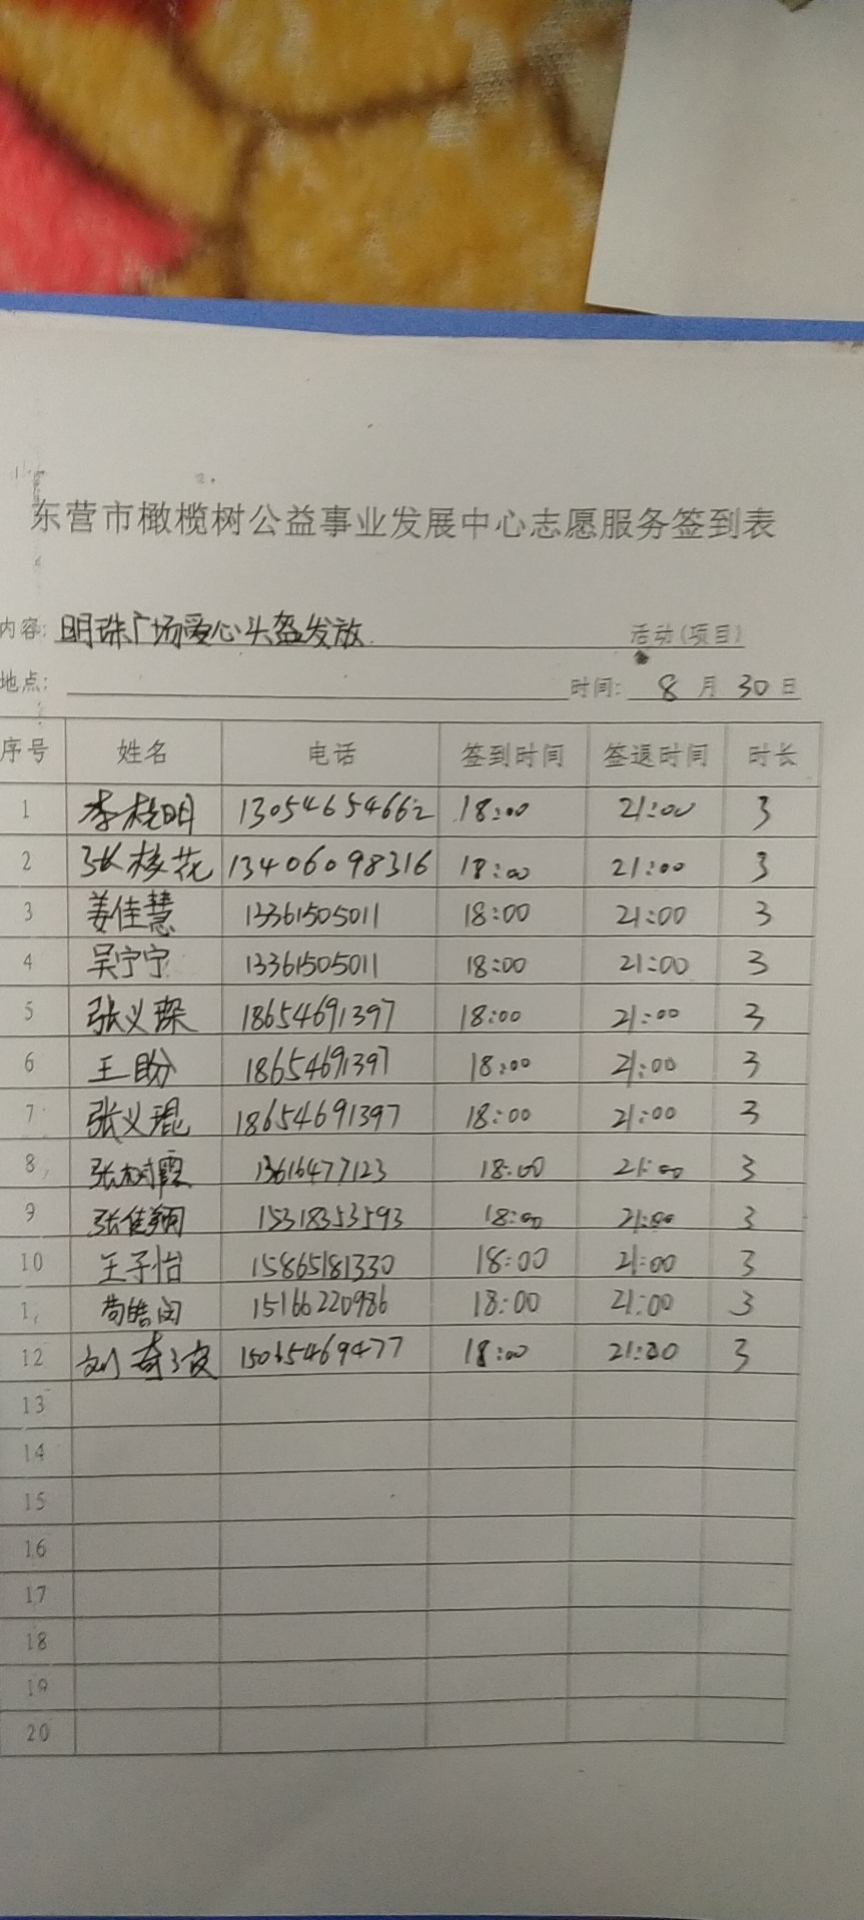 东营市橄榄树公益事业发展中心志愿服务签到表
内容: 明珠广场爱心头盔发放 活动(项目)
地点: 时间: 8 月 30 日
序号 姓名 电话 签到时间 签退时间 时长
1 李桂明 13054654662 18:00 21:00 3
2 张桂花 13406098316 18:00 21:00 3
3 姜佳慧 13361505011 18:00 21:00 3
4 吴宁宁 13361505011 18:00 21:00 3
5 张义琛 18654691397 18:00 21:00 3
6 王盼 18654691397 18:00 21:00 3
7 张义琨 18654691397 18:00 21:00 3
8 张树霞 13616477123 18:00 21:00 3
9 张佳翔 15318353593 18:00 21:00 3
10 王子怡 15865181330 18:00 21:00 3
1 苟皓闵 15166220986 18:00 21:00 3
12 刘 15065469477 18:00 21:00 3
13
14
15
16
17
18
19
20